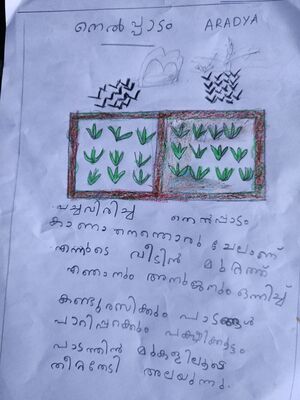 നെൽപ്പാടം ARADYA
പച്ചവിരിച്ച നെൽപ്പാടം
കാണാനെന്തൊരു ചേലാണ്
എന്നുടെ വീടിൻ മുറ്റത്ത്
ഞാനും അനുജനും ഒന്നിച്ച്
കണ്ടുരസിക്കും പാടങ്ങൾ
പാറിപ്പറക്കും പക്ഷിക്കൂട്ടം
പാടത്തിൻ മുകളിലൂടെ
തീരംതേടി അലയുന്നു.